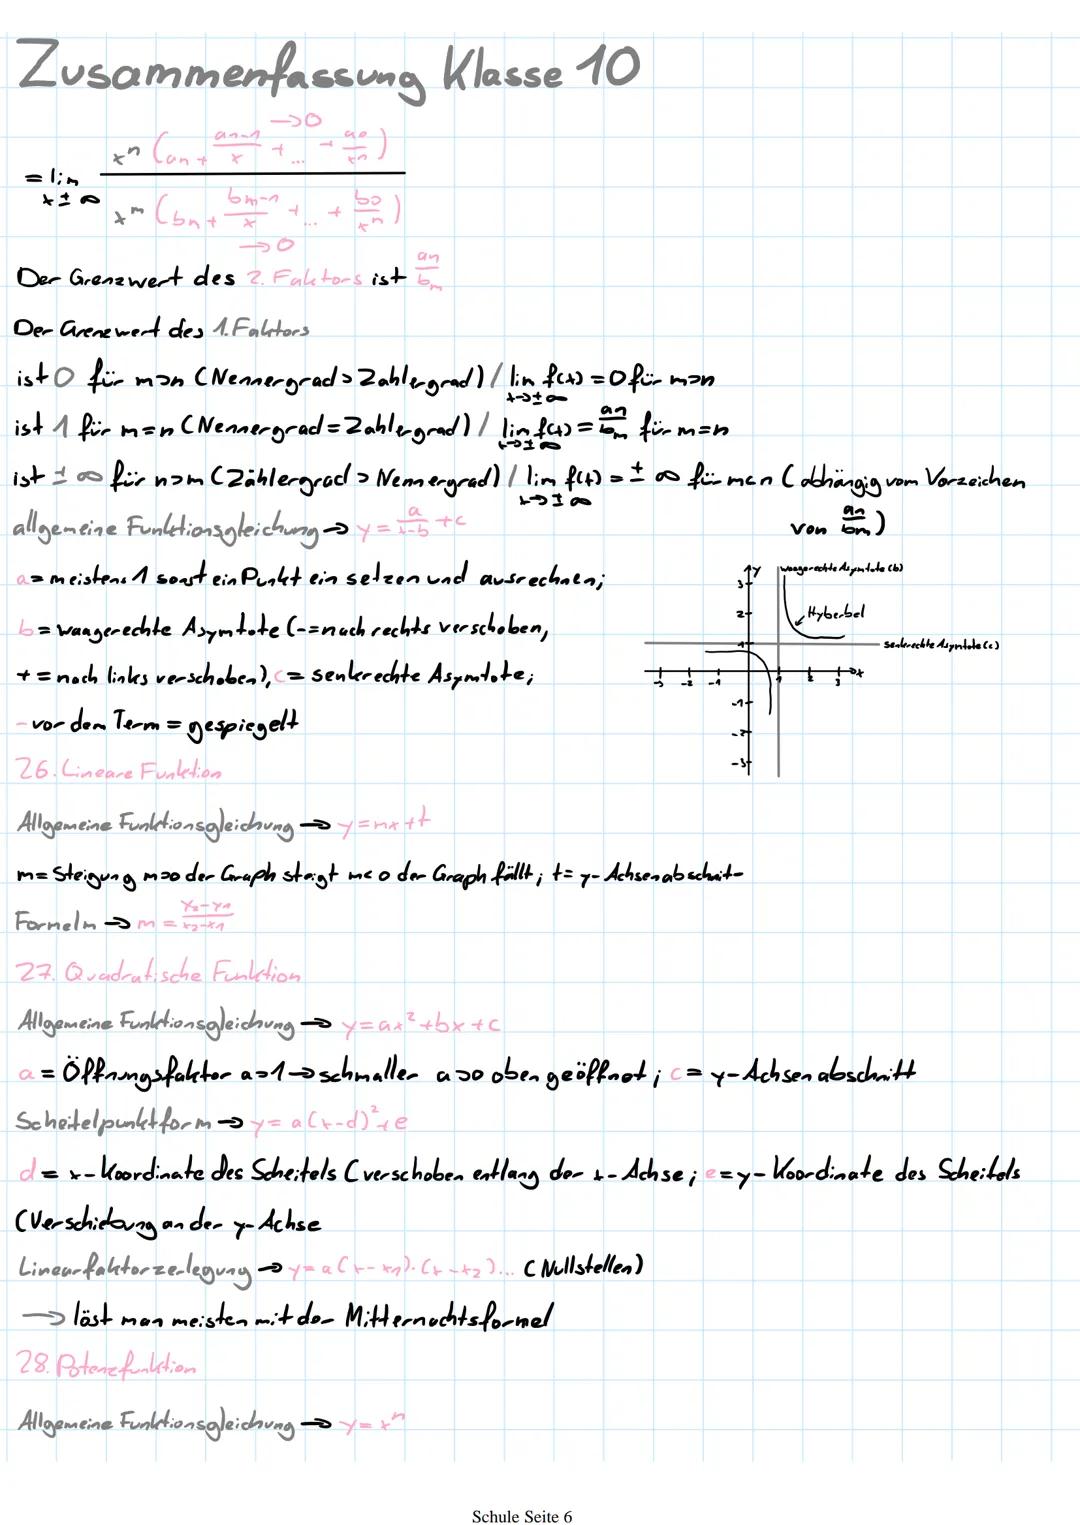 Zusammenfassung Klasse 10
→0
x^n (an + an-1/x + ... + a0/x^n)
= lim
x ± ∞
x^m (bn + bm-1/x + ... + b0/x^n)
→0
Der Grenzwert des 2. Faktors ist an/bm
Der Grenzwert des 1. Faktors
ist 0 für m>n (Nennergrad > Zahlergrad) / lim x→±∞ f(x) = 0 für m>n
ist 1 für m=n (Nennergrad = Zahlergrad) / lim x→±∞ f(x) = an/bm für m=n
ist ± ∞ für n>m (Zählergrad > Nennergrad) / lim x→±∞ f(x) = ± ∞ für m<n (abhängig vom Vorzeichen
von an/bm)
allgemeine Funktionsgleichung → y = a/x-b + c
a = meistens 1 sonst ein Punkt ein setzen und ausrechnen;
b = waagerechte Asymtote (- = nach rechts verschoben,
+ = nach links verschoben), c = senkrechte Asymtote;
- vor dem Term = gespiegelt
y
waagerechte Asymtote (b)
Hyberbel
senkrechte Asymtote (c)
3
2
1
-3 -2 -1 1 2 3 x
-1
-2
-3
26. Lineare Funktion
Allgemeine Funktionsgleichung → y = mx + t
m = Steigung m>0 der Graph steigt m<0 der Graph fällt; t = y-Achsenabschnitt
Formel m → m = y2-y1/x2-x1
27. Quadratische Funktion
Allgemeine Funktionsgleichung → y = ax² + bx + c
a = Öffnungsfaktor a>1 → schmaller a>0 oben geöffnet; c = y-Achsenabschnitt
Scheitelpunktform → y = a(x-d)² + e
d = x-Koordinate des Scheitels (verschoben entlang der x-Achse; e = y-Koordinate des Scheitels
(Verschiebung an der y-Achse
Linearfaktorzerlegung → y = a(x-x1)·(x-x2)... (Nullstellen)
→ löst man meisten mit der Mitternachtsformel
28. Potenzfunktion
Allgemeine Funktionsgleichung → y = x^n
Schule Seite 6